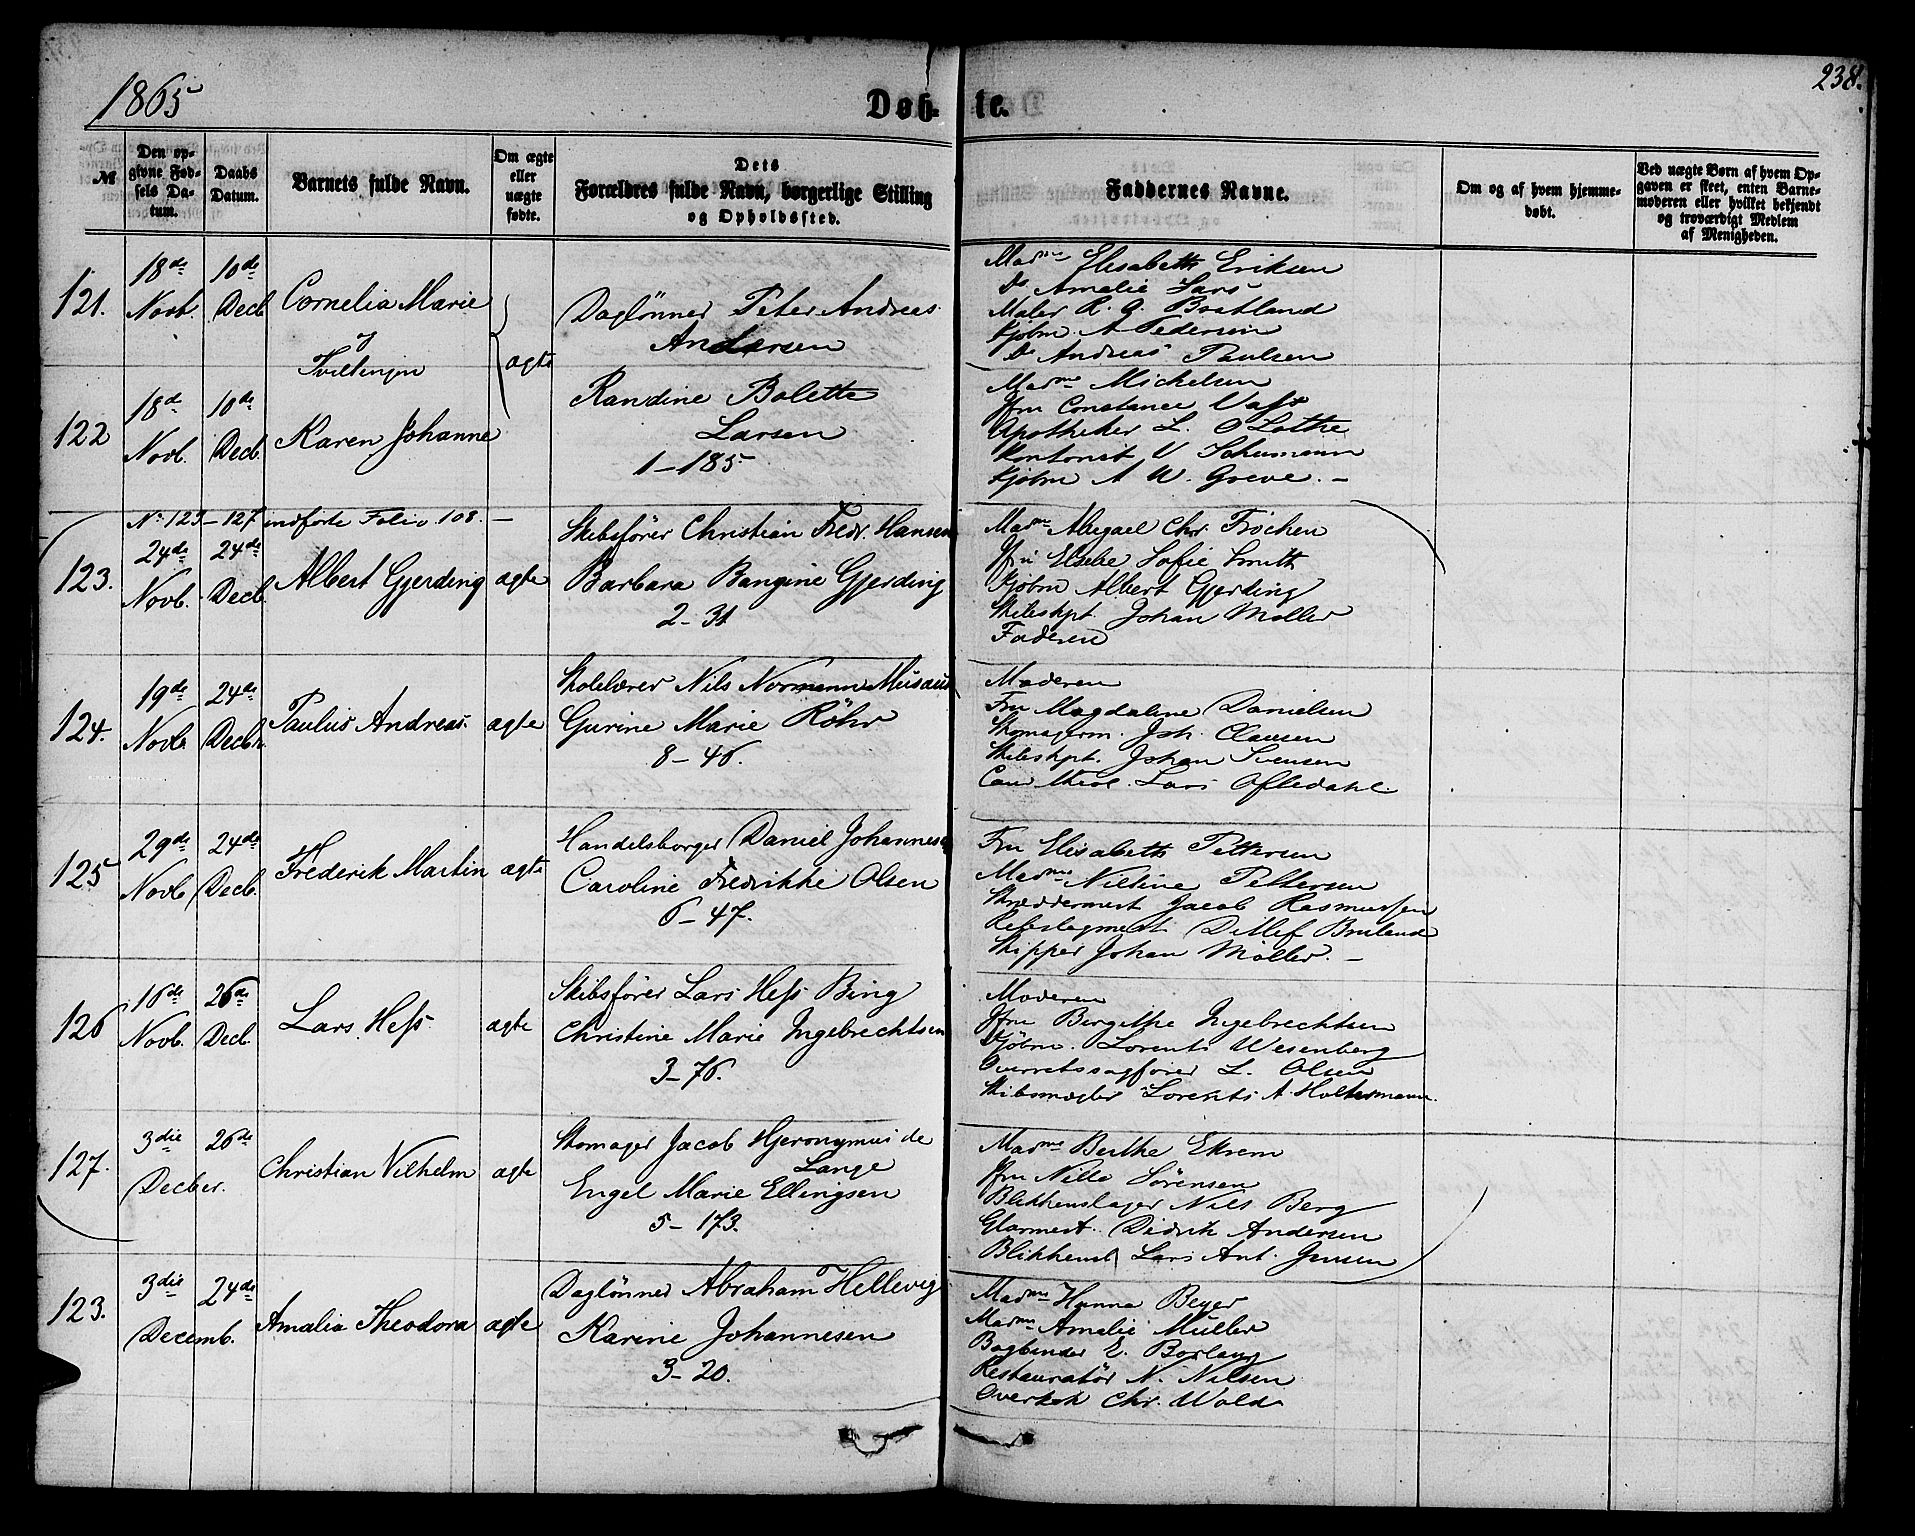 1865
Døb-
te.
238.
№
Den op-
givne Fød-
sels Da-
tum.
Daabs
Datum.
Barnets fulde Navn.
Om ægte
eller
uægte
fødte.
Dets
Forældres fulde Navn, borgerlige Stilling
og Opholdssted.
Faddernes Navne.
Om og af hvem hjemme-
døbt.
Ved uægte Børn af hvem Op-
gaven er skeet, enten Barne-
moderen eller hvilket bekjendt
og troværdigt Medlem
af Menigheden.
121.
18de
Novb.
10de
Decb
Cornelia Marie
Tvillinger
ægte
Daglønner Peter Andreas
Andersen
Madme Elisabeth Eriksen
Do Amalie Lars
Maler R. A. Bratland
Kjøbm. A Pedersen
Do Andreas Paulsen
122
18d
Novb.
10de
Decb.
Karen Johanne
Randine Bolette
Larsen
1-185
Madme Michelsen
Jfru Constance
Apotheker L. O Lothe
Kontorist V Schumann
Kjøbm A W. Greve. –
No 123-127 indførte Folio 108. –
123.
24de
Novb.
24de
Decb.
Albert Gjerding
ægte
Skibsfører Christian Fredr. Hansen
Barbara Bangine Gjerding
2-31
Madme Abigael Chr. Fröchen
Jfru Elsebe Sofie Smith
Kjøbm Albert Gjerding
Skibskpt. Johan Møller
Faderen
124.
19de
Novb
24de
Decbr.
Paulus Andreas.
ægte
Skolelærer Nils Normann Musæus
Gurine Marie Röhr
8-46.
Moderen
Fru Magdaline Danielsen
Skomagerm. Joh. Clausen
Skibskpt. Johan Svensen
Can theol. Lars Oftedahl.
125
29de
Novb
24de
Decb.
Frederik Martin
ægte
Handelsborger Daniel Johannesen
Caroline Fredrikke Olsen
6-47.
Fru Elisabeth Pettersen
Madme Nilline Pettersen
Skreddermest Jacob Rasmussen
Rebslagmest Ditlef Bruland
Skipper Johan Møller. –
126
16de
Novb.
26de
Decb.
Lars Hess
ægte
Skibsfører Lars Hess Bing
Christine Marie Ingebrechtsen
3-76.
Moderen
Jfru Bergithe Ingebrechtsen
Kjøbm. Lorents Wesenberg
Overretssagfører L. Olsen
Skibsmægler Lorents A. Holtermann.
127.
3die
26de
Decber.
Christian Vilhelm
ægte
Skomager Jacob Hjeronymus de
Lange
Engel Marie Ellingsen
5-173.
Madme Berthe Ekrem
Jfru Nille Sørensen
Blikkenslager Nils Berg
Glarmest. Didrik Andersen
Blikkensl Lars Ant. Jensen
123.
3die
24de
Decemb.
Amalia Theodora
ægte
Daglønner Abraham Hellevig
Karine Johannesen
3-20.
Madme Hanna Beyer
Madme Amalie Müller
Bogbinder E. Borlaug
Restauratör N. Nilsen
Overkok Chr. Wold